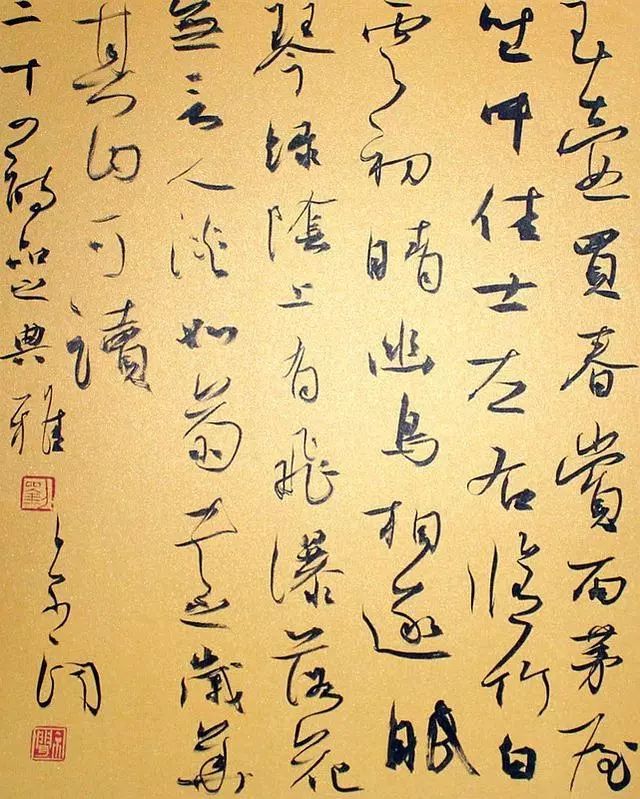 玉壺買春賞雨茅屋
坐中佳士左右脩竹白
雲初晴幽鳥相逐眠
琴綠陰上有飛瀑落花
無言人淡如菊書之歲華
其曰可讀
二十四詩品之典雅
劉